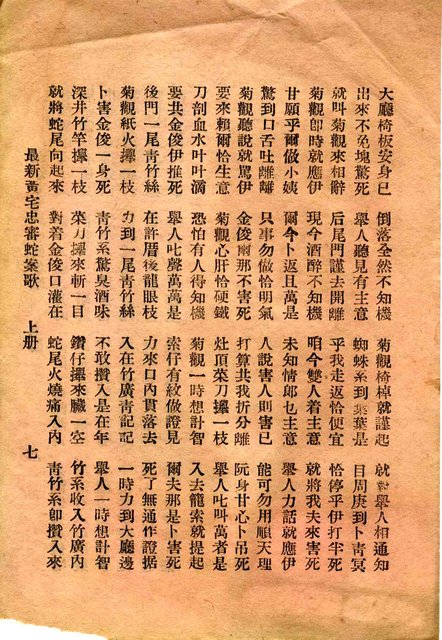 大廳椅板安身已 倒落全然不知機 菊觀椅棹就謹起 就對舉人相通知
出來不免塊驚死 舉人聽見有主意 蜘蛛系到葉葉是 目周庚到卜青冥
就叫菊觀來相辭 后尾門謹去開離 乎我走返恰便宜 恰停乎伊打半死
菊觀即時就應伊 現今酒醉不知機 咱今雙人着主意 就將我夫來害死
甘願乎爾做小姨 爾今卜返且萬是 未知情郎乜主意 舉人力話就應伊
驚到口舌吐離離 只事勿做恰明氣 人說害人則害已 能可勿用順天理
菊觀聽說就罵伊 金俊爾那不害死 打算共我折分離 阮身甘心卜吊死
要來賴爾恰生意 菊觀心肝恰硬鐵 灶頂菜刀攑一枝 舉人叱叫萬者是
刀剖血水叶叶滴 恐怕有人得知機 菊觀一時想計智 入去籠索就提起
要共金俊伊推死 舉人叱聲萬萬是 索仔有紋做證見 爾夫那是卜害死
後門一尾青竹絲 在許厝後龍眼枝 力來口內貫落去 死了無通作證据
菊觀紙火攑一枝 力到一尾青竹絲 入在竹廣青記記 一時力到大廳邊
卜害金俊一身死 青竹系驚臭酒味 不敢攢入是在年 舉人一時想計智
深井竹竿攑一枝 菜刀攑來斬一目 鑽仔攑來賺一空 竹系收入竹廣內
就將蛇尾向起來 對着金俊口灌在 蛇尾火燒痛入內 青竹系卽攢入來
最新黃宅忠審蛇案歌 上册 七